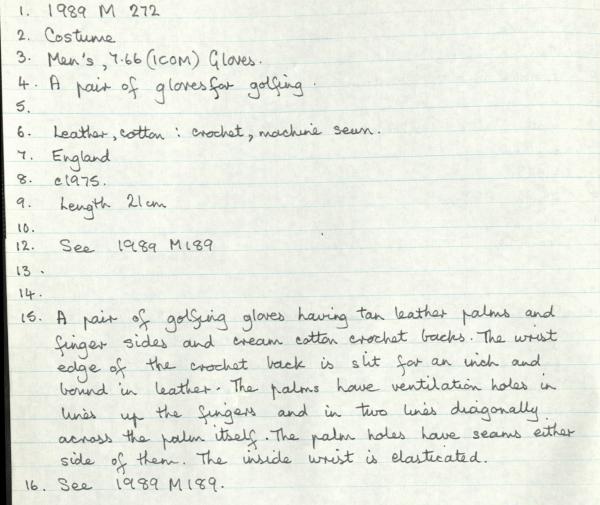 1. 1989 M 272
2. Costume
3. Men's, 7.66 (ICOM) Gloves.
4. A pair of gloves for golfing.
5.
6. Leather, cotton : crochet, machine sewn.
7. England
8. c1975.
9. Length 21cm
10.
12. See 1989 M189
13.
14.
15. A pair of golfing gloves having tan leather palms and
finger sides and cream cotton crochet backs. The wrist
edge of the crochet back is slit for an inch and
bound in leather. The palms have ventilation holes in
lines up the fingers and in two lines diagonally
across the palm itself. The palm holes have seams either
side of them. The inside wrist is elasticated.
16. See 1989 M189.